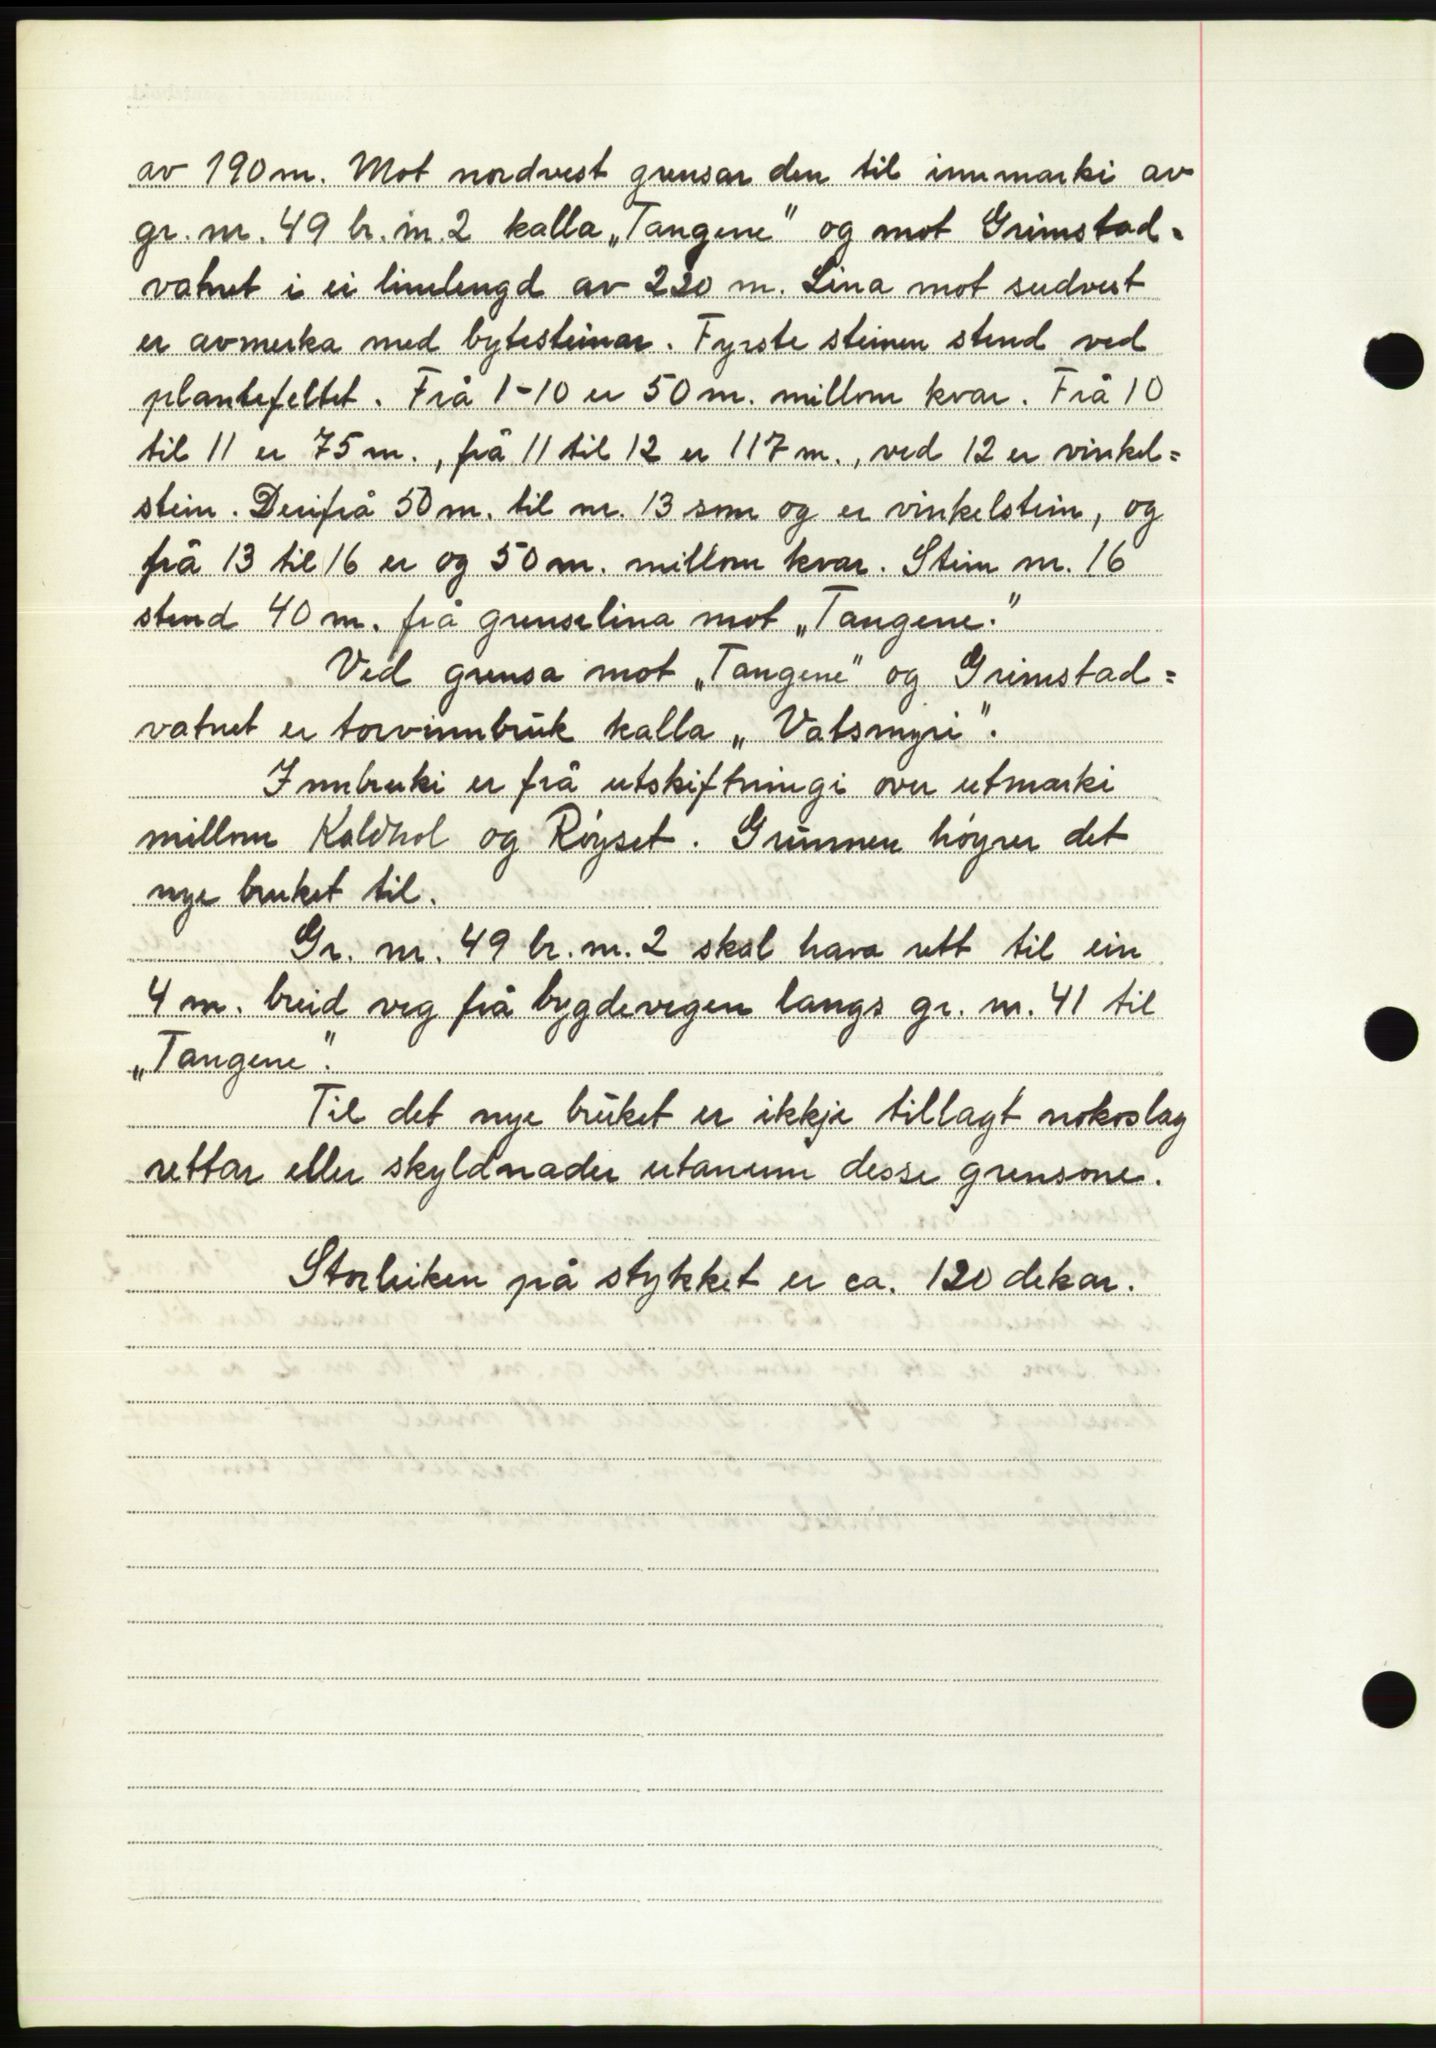 av 190 m. Mot nordvest grensar den til innmarki av
gr. nr. 49 br. nr. 2 kalla „Tangene" og mot Grimstad=
vatnet i ei linelengd av 220 m. Lina mot sudvest
er avmerka med bytesteinar. Fyrste steinen stend ved
plantefeltet. Frå 1-10 er 50 m. millom kvar. Frå 10
til 11 er 75 m., frå 11 til 12 er 117 m., ved 12 er vinkel=
stein. Derifrå 50 m. til nr. 13 som og er vinkelstein, og
frå 13 til 16 er og 50 m. millom kvar. Stein nr. 16
stend 40 m. frå grenselina mot „Tangene."
Ved grensa mot „Tangene" og Grimstad=
vatnet er torvinnbruk kalla „Vatsmyri".
Innbruki er frå utskiftningi over utmarki
millom Kaldhol og Röyset. Grunnen höyrer det
nye bruket til.
Gr. nr. 49 br. nr. 2 skal hava rett til ein
4 m. breid veg frå bygdevegen langs gr. nr. 41 til
„Tangene".
Til det nye bruket er ikkje tillagt nokoslag
rettar eller skyldnader utanum desse grensone.
Storleiken på stykket er ca. 120 dekar.